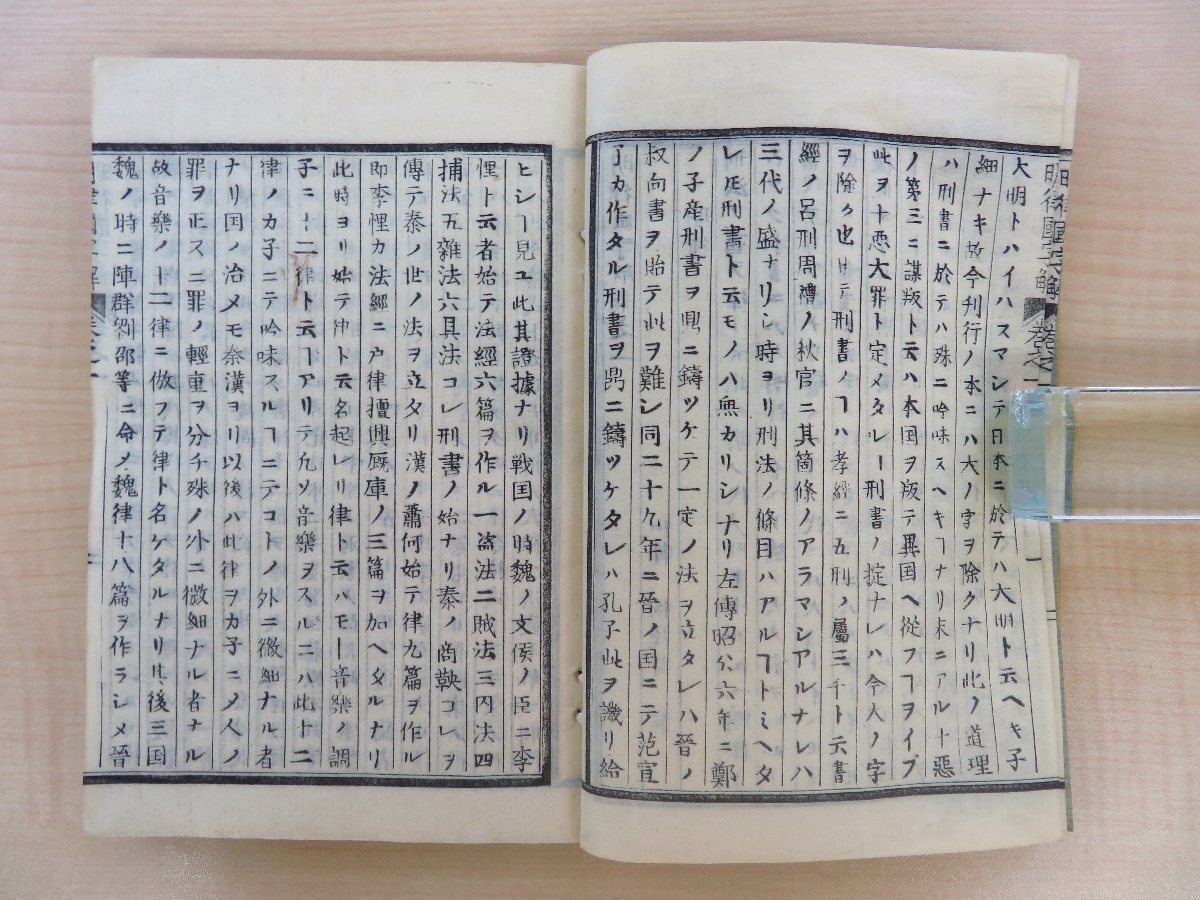 明律國字解 巻之一
大明トハイハスマシテ日本ニ於テハ大明ト云ヘキ子
細ナキ故今刊行ノ本ニハ大ノ字ヲ除クナリ此ノ道理
ハ刑書ニ於テハ殊ニ吟味スヘキヿナリ末ニアル十惡
ノ第三ニ謀叛ト云ハ本国ヲ叛テ異国ヘ從フヿヲイフ
此ヲ十悪大罪ト定メタルー刑書ノ掟ナレハ今大ノ字
ヲ除ク也サテ刑書ノヿハ孝經ニ五刑ノ屬三千ト云書
經ノ呂刑周禮ノ秋官ニ其箇條ノアラマシアルナレハ
三代ノ盛ナリシ時ヨリ刑法ノ條目ハアルヿトミヘタ
レ𪜈刑書ト云モノハ無カリシナリ左傳昭公六年ニ鄭
ノ子産刑書ヲ鼎ニ鑄ツケテ一定ノ法ヲ立タレハ晉ノ
叔向書ヲ貽テ此ヲ難シ同二十九年ニ晉ノ国ニテ范宣
子カ作タル刑書ヲ鼎ニ鑄ツケタレハ孔子此ヲ譏リ給
ヒシヿ見ユ此其證據ナリ戦国ノ時魏ノ文侯ノ臣ニ李
悝ト云者始テ法經六篇ヲ作ル一盗法二賊法三囚法四
捕法五雜法六具法コレ刑書ノ始ナリ秦ノ商鞅コレヲ
傳テ秦ノ世ノ法ヲ立タリ漢ノ蕭何始テ律九篇ヲ作ル
即李悝カ法經ニ戸律擅興厩庫ノ三篇ヲ加ヘタルナリ
此時ヨリ始テ律ト云名起レリ律ト云ハモト音樂ノ調
子ニ十二律ト云ヿアリテ凢ソ音樂ヲスルニハ此十二
律ノカ子ニテ吟味スルヿニテコトノ外ニ微細ナル者
ナリ国ノ治メモ秦漢ヨリ以後ハ此律ヲカ子ニメ人ノ
罪ヲ正スニ罪ノ輕重ヲ分チ殊ノ外ニ微細ナル者ナル
故音樂ノ十二律ニ倣フテ律ト名ケタルナリ其後三国
魏ノ時ニ陣群劉邵等ニ命メ魏律十八篇ヲ作ラシメ晉